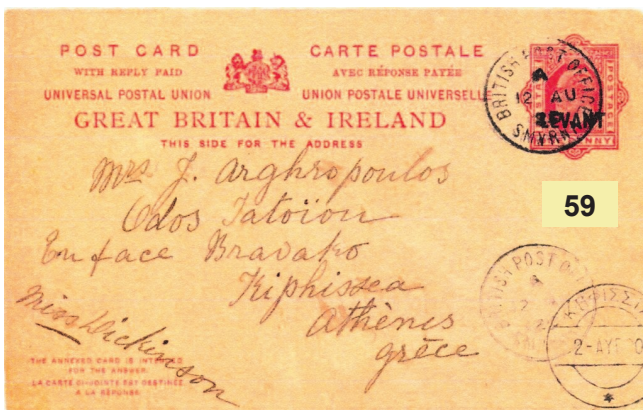 POST CARD
WITH REPLY PAID
UNIVERSAL POSTAL UNION
CARTE POSTALE
AVEC RÉPONSE PAYÉE
UNION POSTALE UNIVERSELLE
GREAT BRITAIN & IRELAND
THIS SIDE FOR THE ADDRESS
BRITISH POST OFFICE
A
12 AU
SMYRNA
LEVANT
59
Mrs J. Arghropoulos
Odos Tatoïon
En face Bravako
Kiphissea
Athènes
Grèce
Miss Dickinson
BRITISH POST
ΚΗΦΙΣΣΙ
2-ΑΥΓ
THE ANNEXED CARD IS INTENDED
FOR THE ANSWER.
LA CARTE CI-JOINTE EST DESTINÉE
A LA RÉPONSE.